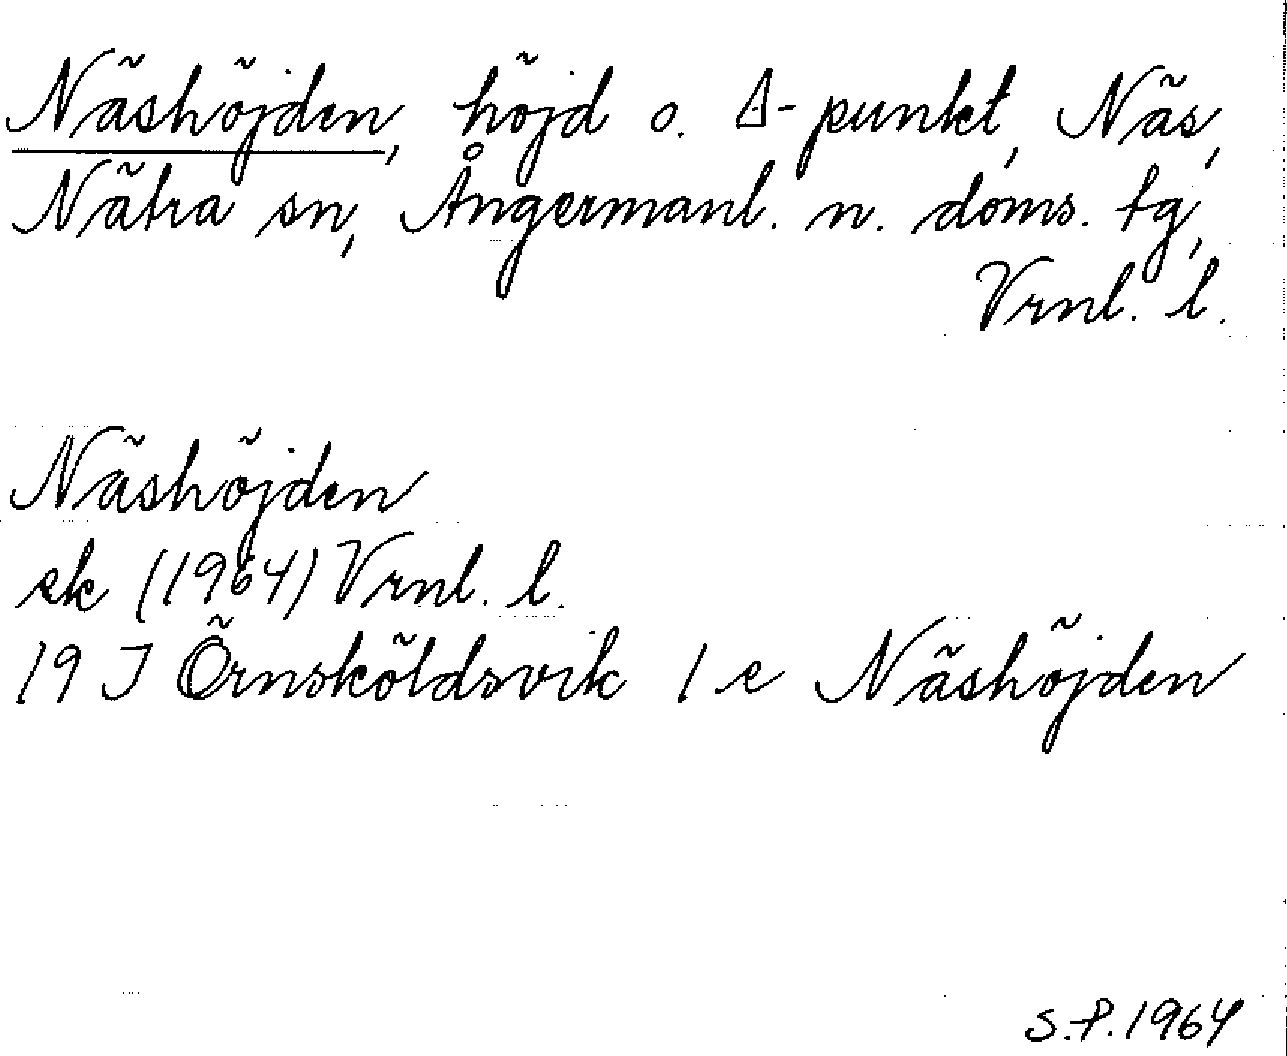 Näshöjden, höjd o. Δ-punkt, Näs,
Nätra sn, Ångermanl. n. doms. tg,
Vrnl. l.
Näshöjden
ek (1964) Vrnl. l.
19 J Örnsköldsvik 1 e Näshöjden
S.P. 1964